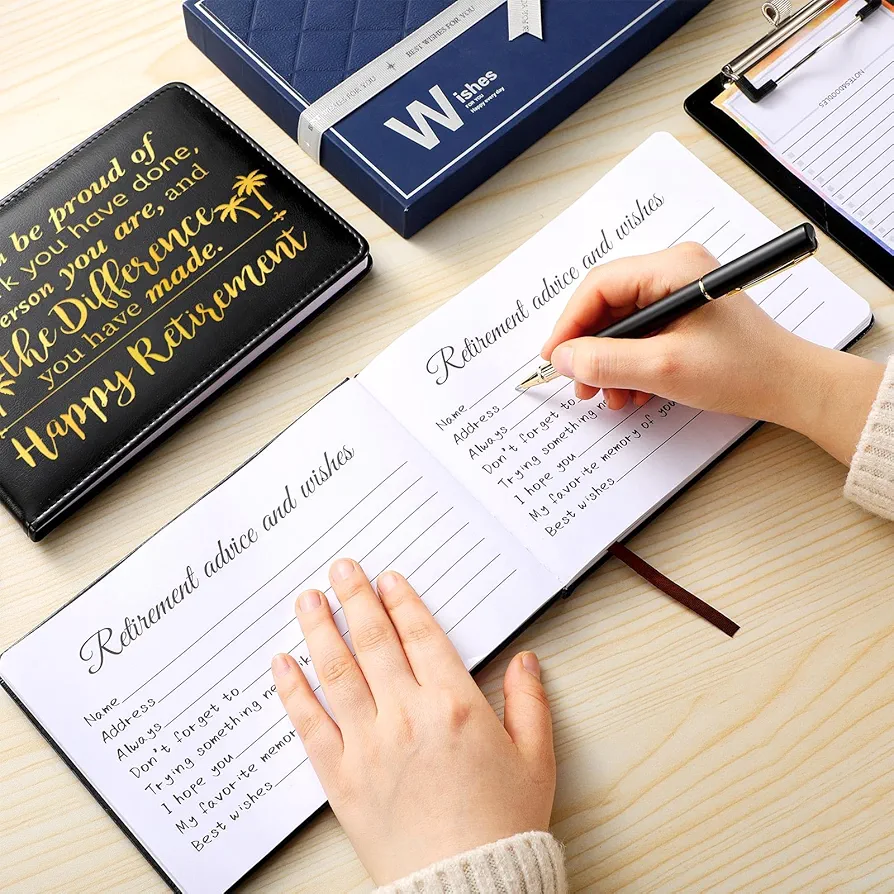 BEST WISHES FOR YOU
WISHES FOR YOU
BEST WISHES FOR YOU
Wishes
FOR YOU
Happy every day
NOTES&DOODLES
be proud of
you have done,
person you are, and
the Difference
you have made.
Happy Retirement
Retirement advice and wishes
Name
Address
Always
Don't forget to
Trying something
I hope you
My favorite memory of you
Best wishes
Retirement advice and wishes
Name
Address
Always
Don't forget to
Trying something
I hope you
My favorite
Best wishes